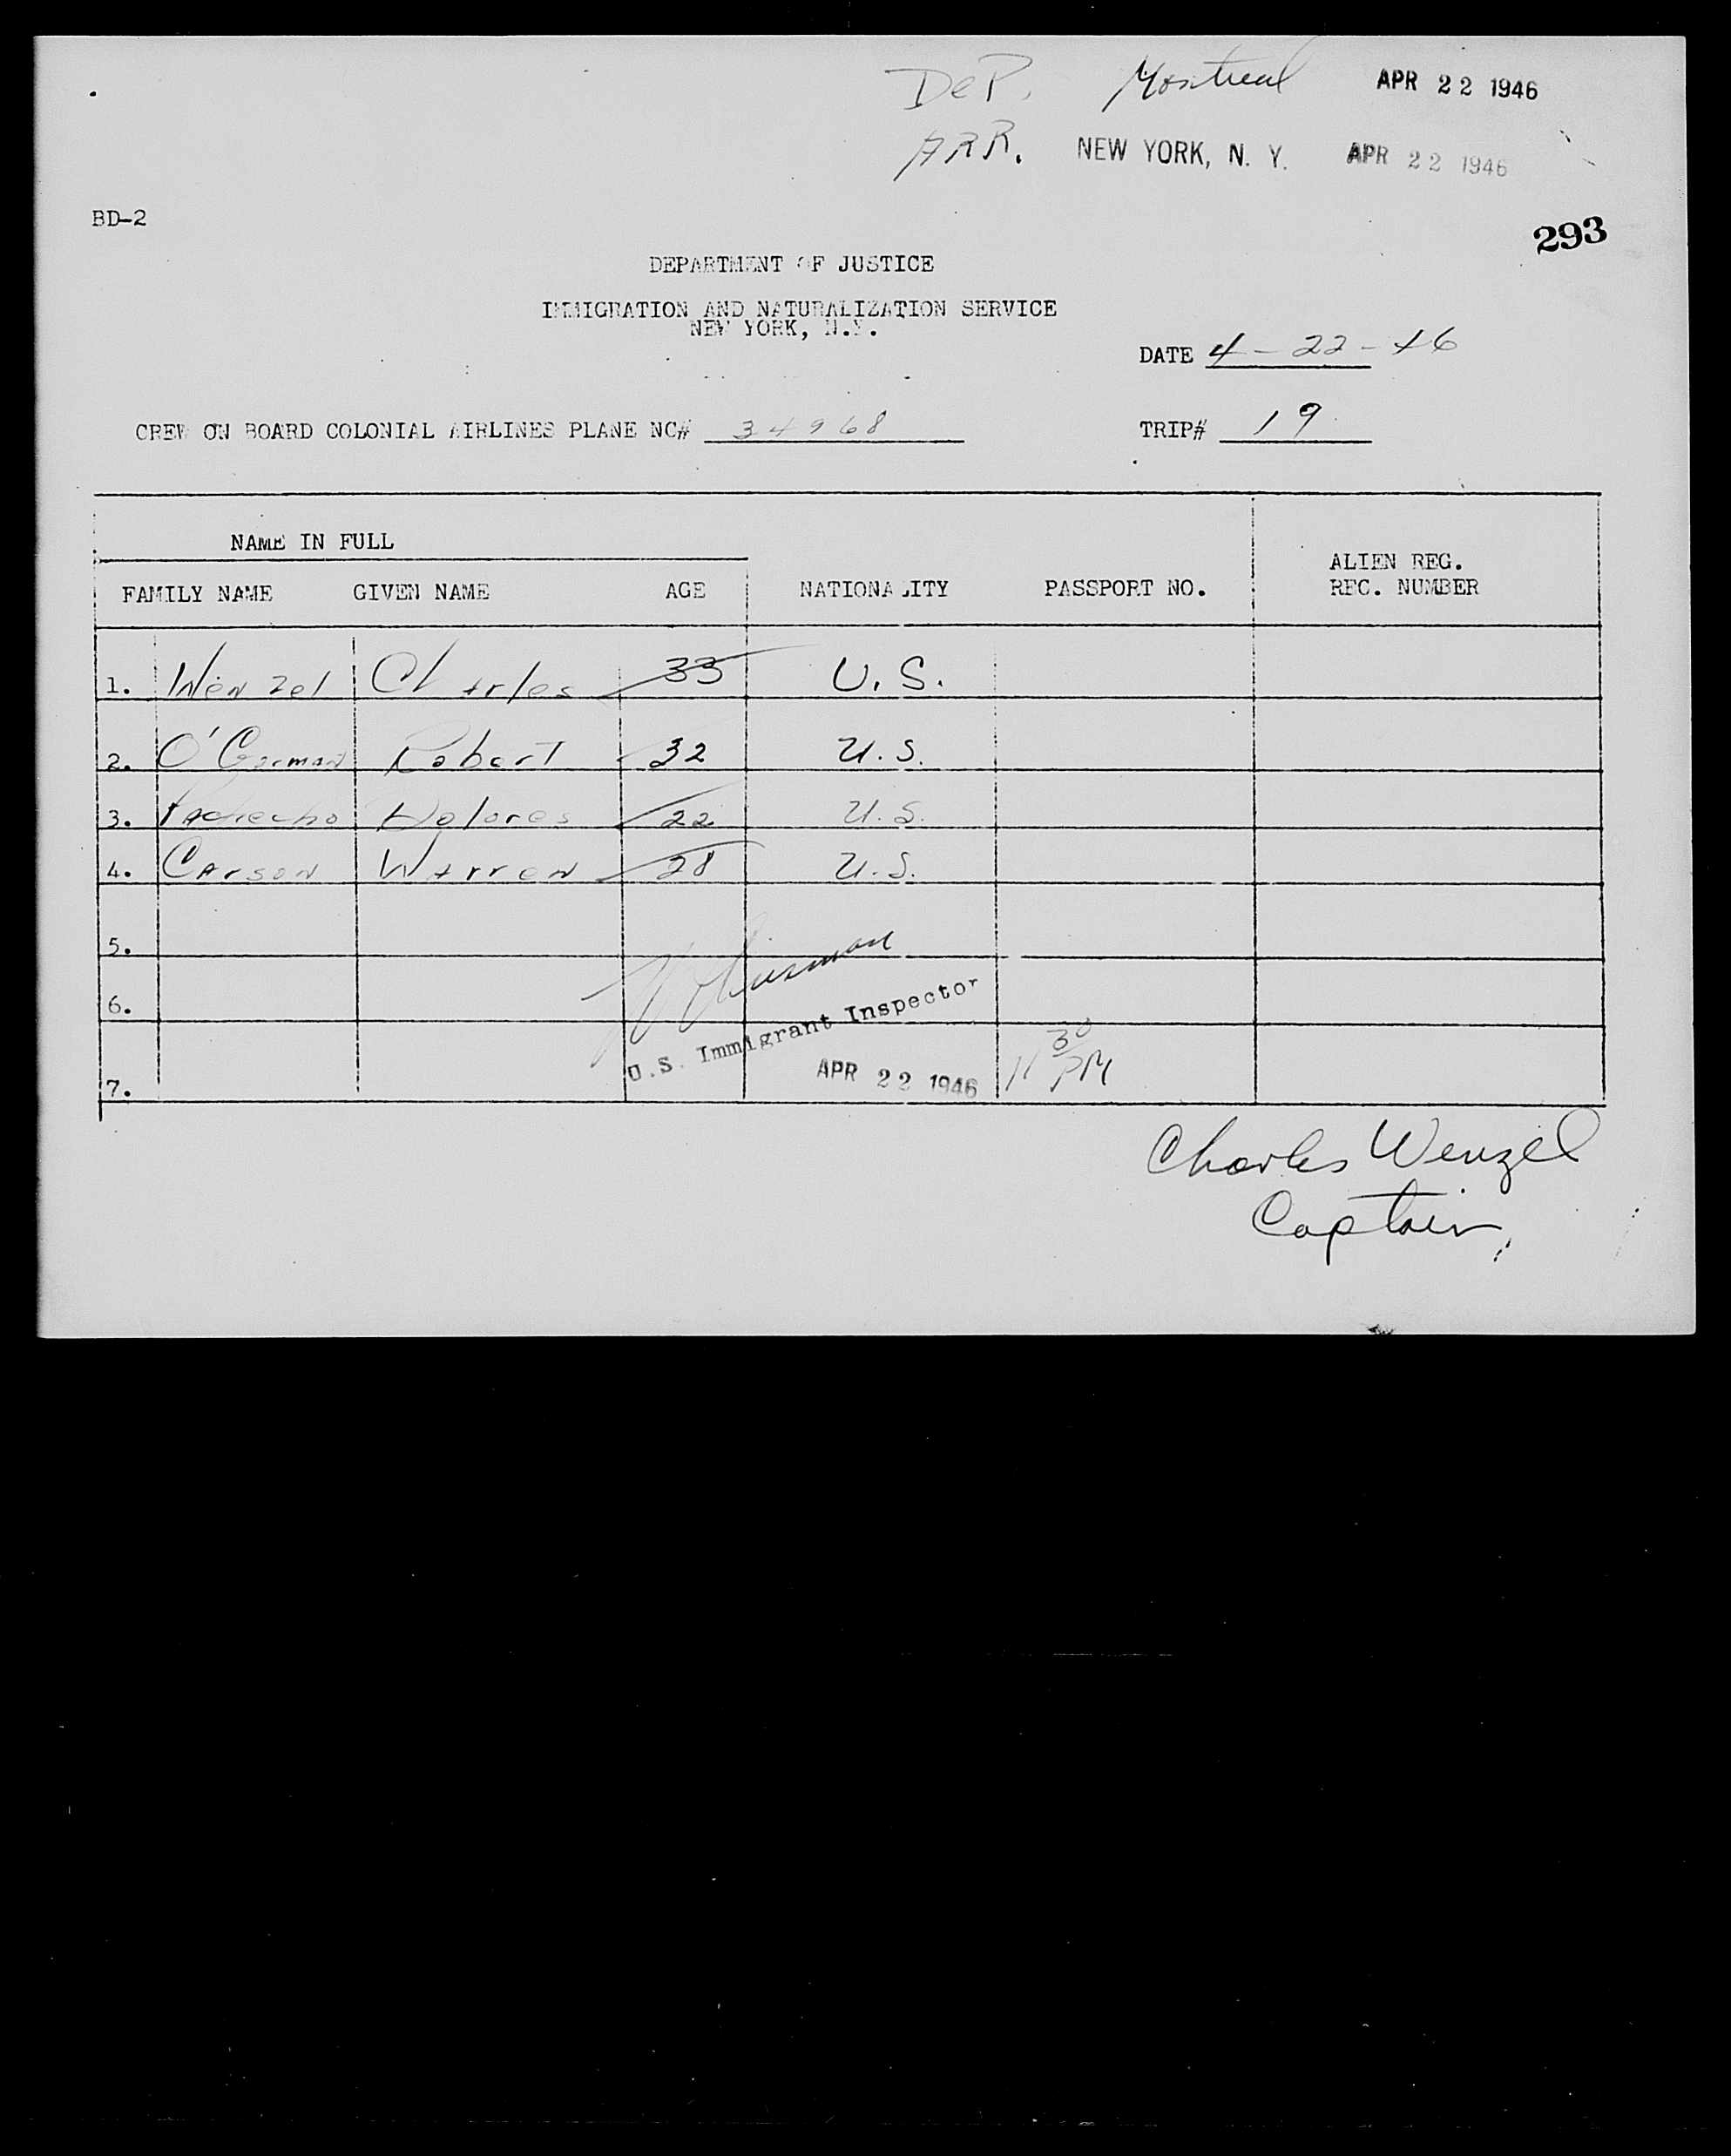 DeP. Montreal APR 22 1946
ARR. NEW YORK, N. Y. APR 22 1946
BD-2
293
DEPARTMENT OF JUSTICE
IMMIGRATION AND NATURALIZATION SERVICE
NEW YORK, N.Y.
DATE 4-22-46
CREW ON BOARD COLONIAL AIRLINES PLANE NC# 34968 TRIP# 19
NAME IN FULL
FAMILY NAME GIVEN NAME AGE NATIONALITY PASSPORT NO. ALIEN REG. REC. NUMBER
1. Wenzel Charles 33 U.S.
2. O'Gorman Robert 32 U.S.
3. Pachecho Dolores 22 U.S.
4. Carson Warren 28 U.S.
5.
6.
U.S. Immigrant Inspector
7. APR 22 1946 11 30 PM
Charles Wenzel
Captain